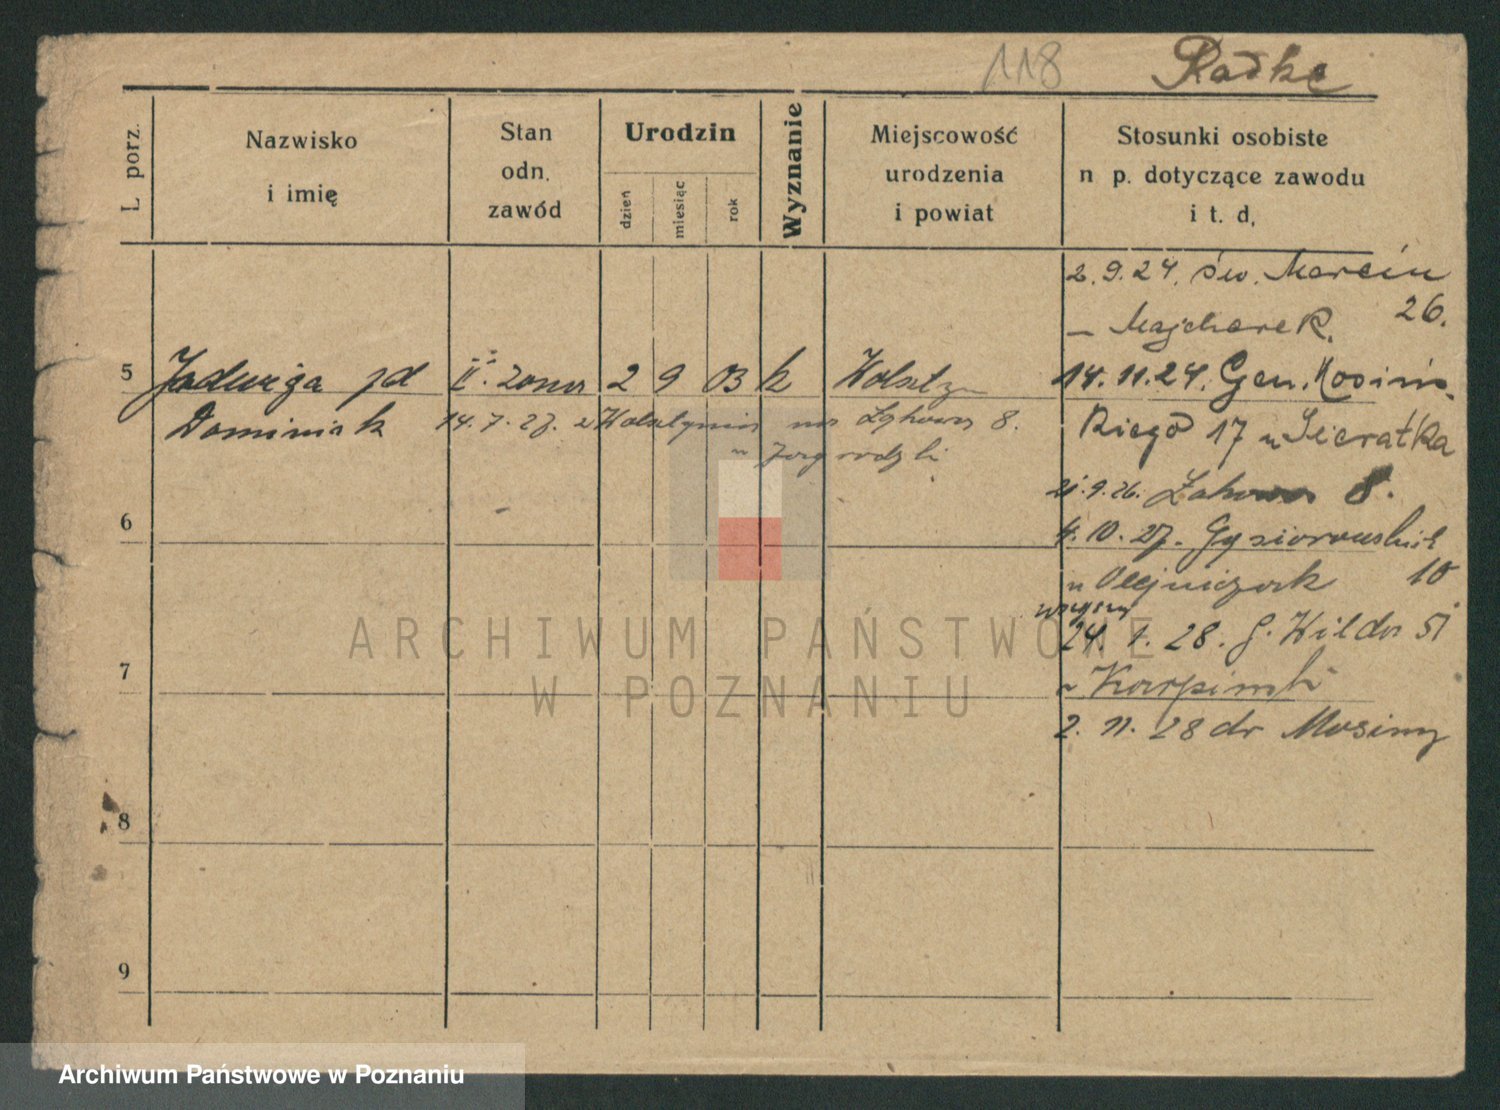 118 Radke
L porz.
Nazwisko
i imię
Stan
odn.
zawód
Urodzin
dzień
miesiąc
rok
Wyznanie
Miejscowość
urodzenia
i powiat
Stosunki osobiste
n p. dotyczące zawodu
i t. d.
2. 9. 24. św. Marcin
26.
— Majcharek.
5 Jadwiga jd II. żona 2 9 03 k Wolsztyn 14. 11. 24. Gen. Kosińs
Dominiak 14. 7. 27. z Wolsztyna na Łąkowa 8. kiego 17 u Sieratka
u Zagrodzki
21. 9. 26. Łąkowa 8.
6 4. 10. 27. Gąsiorowskich
u Olejniczak 10
7 24. 1. 28. G. Wilda 51
u Karpiński
2. 11. 28 do Mosiny
8
9
ARCHIWUM PAŃSTWOWE
W POZNANIU
Archiwum Państwowe w Poznaniu